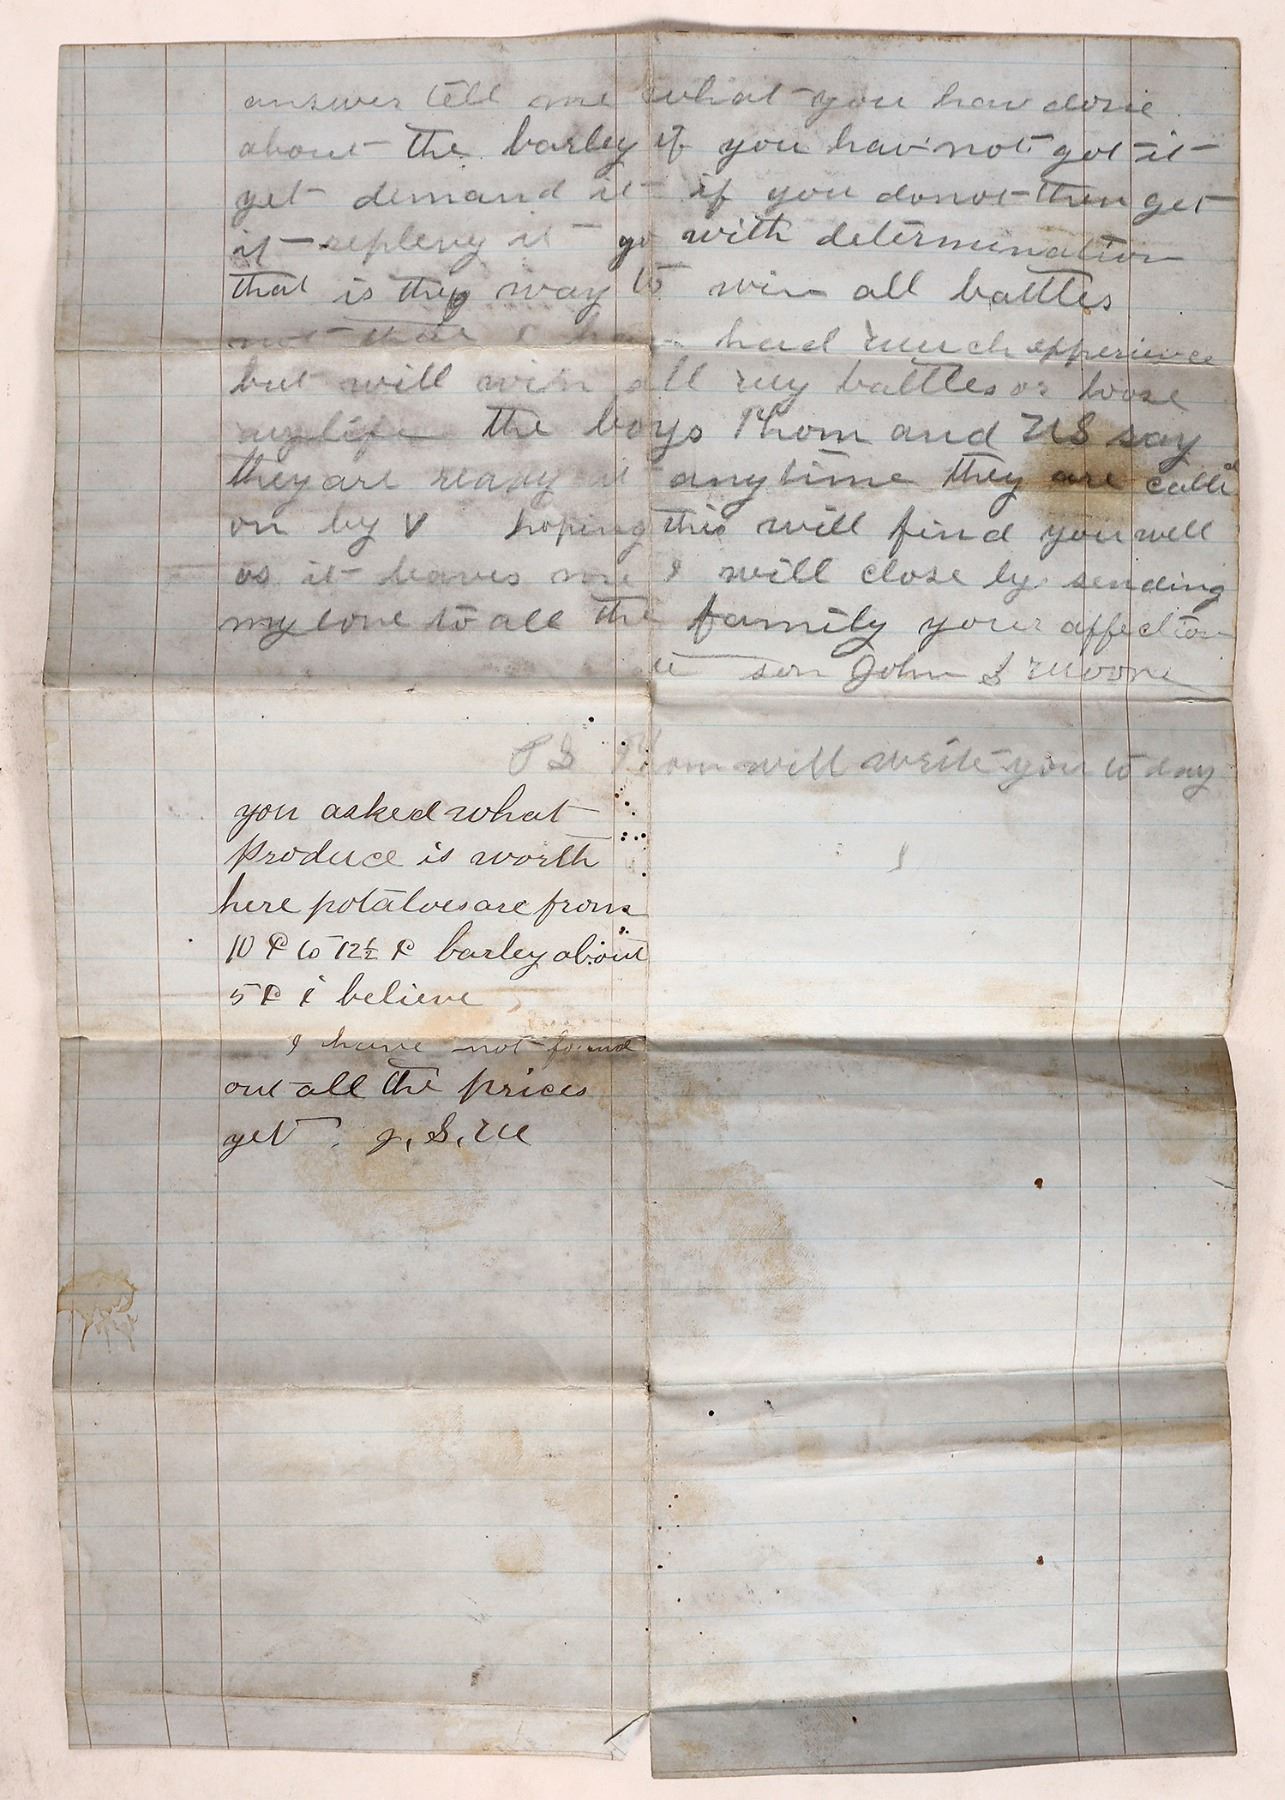 answer tell me what you hav done
about the barley if you hav not got it
yet demand it if you do not then get
it replevy it go with determination
that is they way to win all battles
not that I hav had much experience
but will win all my battles or loose
my life the boys Thom and US say
they are ready at anytime they are calld
on by V hoping this will find you well
as it leaves me I will close by sending
my love to all the family your affection
ate son John S Moore
PS Thom will write you to day
you asked what
produce is worth
here potatoes are from
10 ¢ to 12½ ¢ barley about
5 ¢ i believe
I have not found
out all the prices
yet. J. S. M